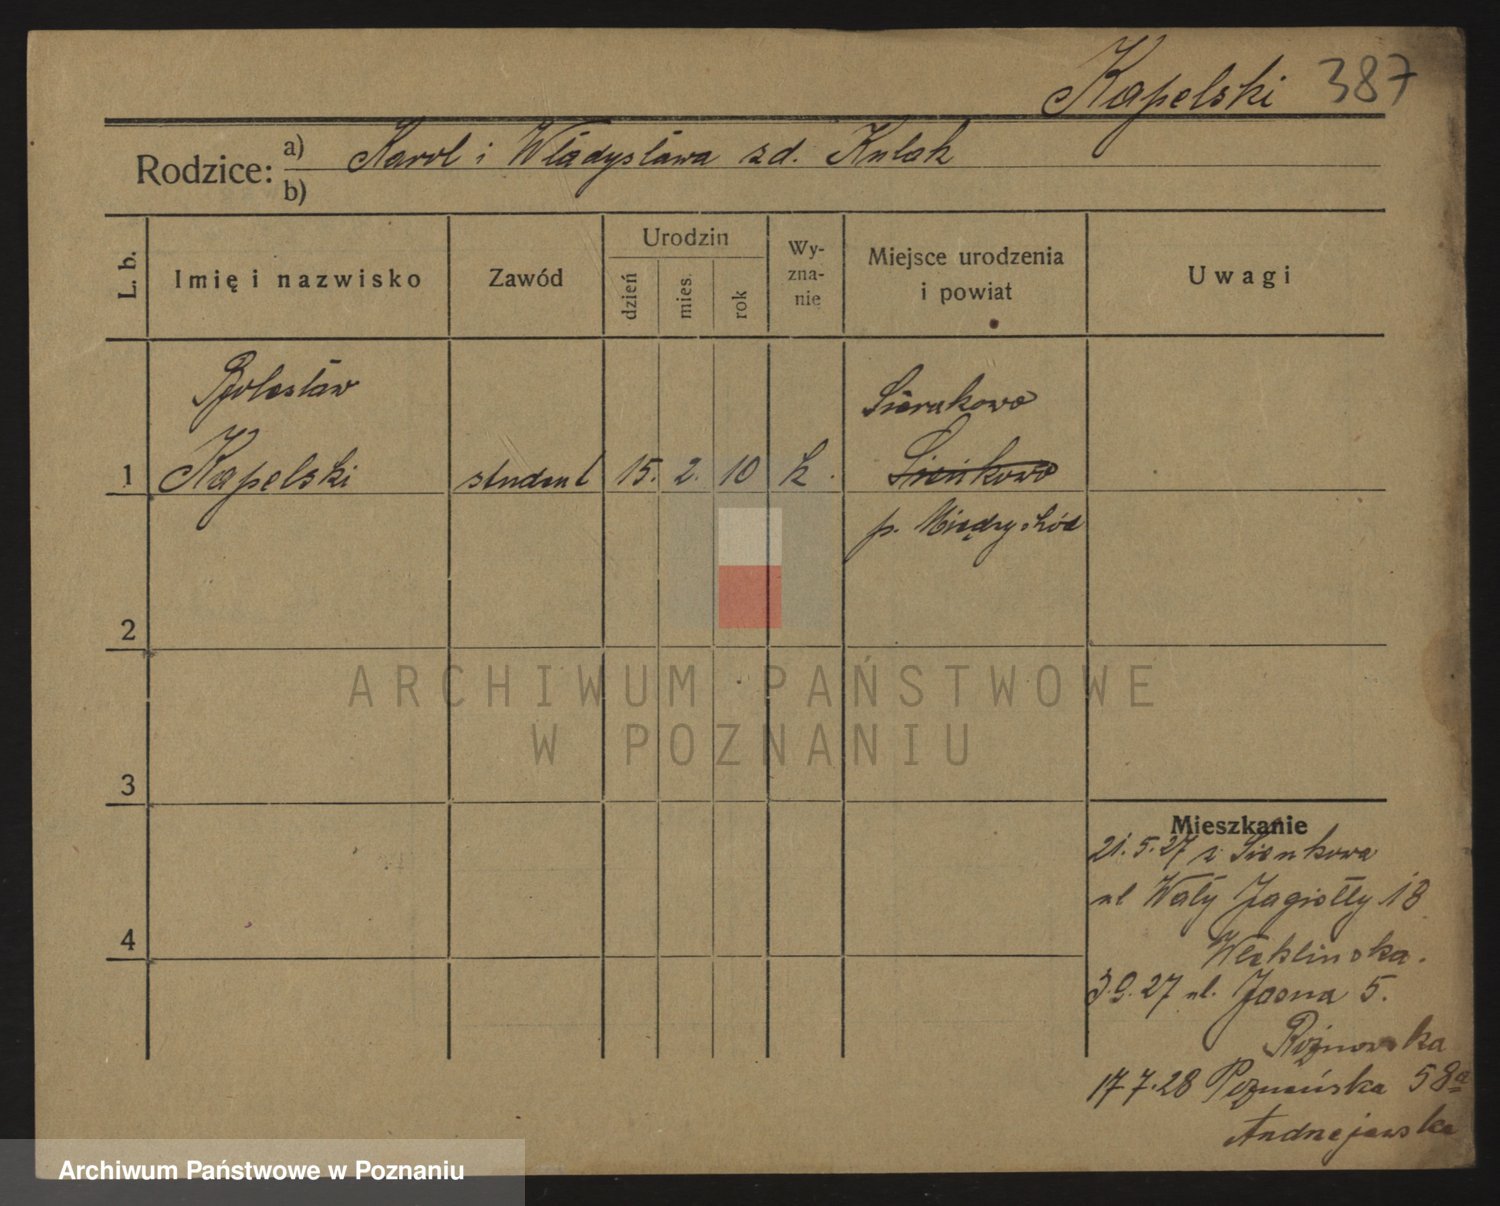 Kapelski 387
Rodzice: a) Karol i Władysława zd. Kulak
b)
L. b. Imię i nazwisko Zawód Urodzin dzień mies. rok Wy-zna-nie Miejsce urodzenia i powiat Uwagi
Bolesław Sierakowo
1 Kapelski student 15. 2. 10 k. Sienkowo
p. Międzychód
2
3
4
Mieszkanie
21.5.27 z Sienkowa
ul Wały Jagiełły 18
3.9.27 ul. Jasna 5.
Rożnowska
17 7.28 Poznańska 58a
Andrzejewska
ARCHIWUM PAŃSTWOWE
W POZNANIU
Archiwum Państwowe w Poznaniu